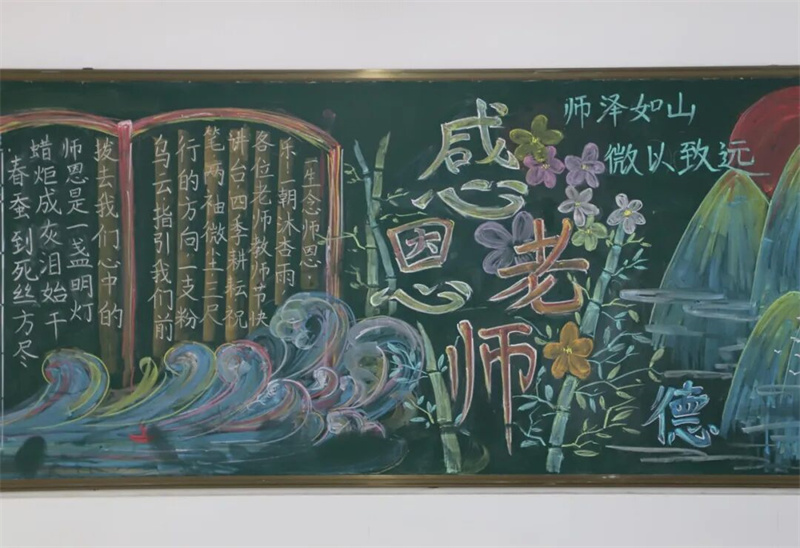 春蚕到死丝方尽、
蜡炬成灰泪始干
师恩是一盏明灯
拨去我们心中的
乌云指引我们前
行的方向一支粉
笔两袖微尘三尺
讲台四季耕耘祝
各位老师教师节快
乐！朝沐杏雨
一生念师恩。
感恩老师
师泽如山
微以致远
德